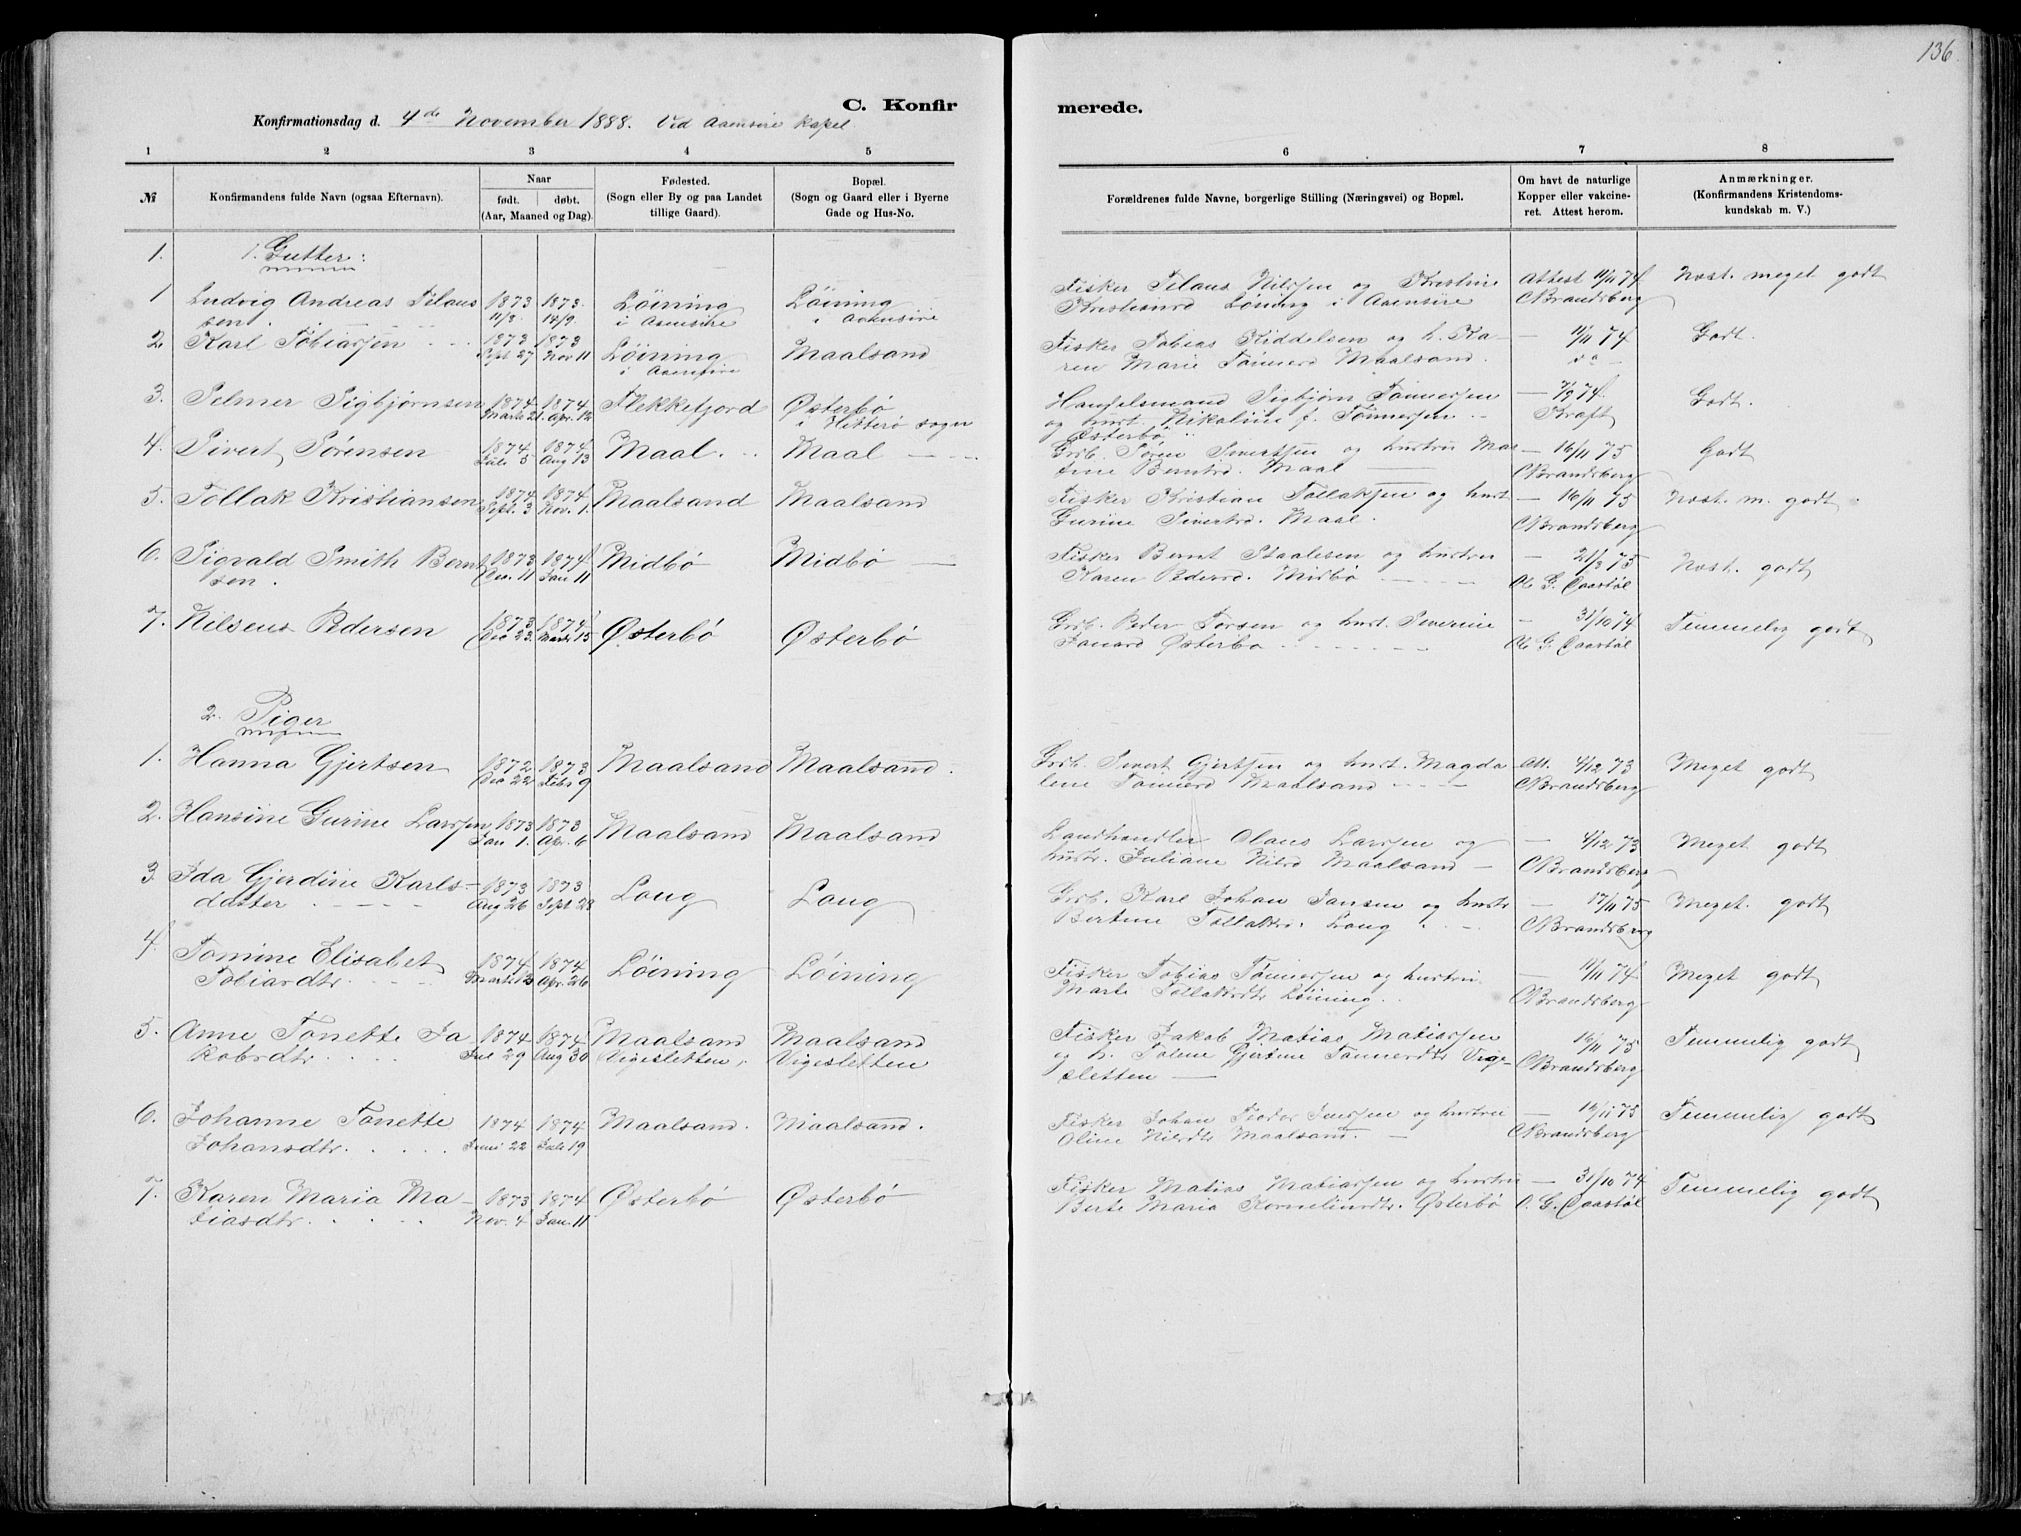 136
C. Konfirmerede.
Konfirmationsdag d. 4de November 1888. Ved Aaensire kapel
1 2 3 4 5 6 7 8
№ Konfirmandens fulde Navn (ogsaa Efternavn). Naar født. døbt. (Aar, Maaned og Dag). Fødested. (Sogn eller By og paa Landet tillige Gaard). Bopæl. (Sogn og Gaard eller i Byerne Gade og Hus-No. Forældrenes fulde Navne, borgerlige Stilling (Næringsvei) og Bopæl. Om havt de naturlige Kopper eller vakcineret. Attest herom. Anmærkninger. (Konfirmandens Kristendomskundskab m. V.)
1. 1. Gutter:
1 Ludvig Andreas Tilaus 1873 1873. Löining Löining Fisker Tilaus Nilssen og Kristine Attest 11/11 74 Næst. meget godt
sen. 11/8. 14/9. i Aaensire i Aaensire Kristiansd Löning i Aaensire CBrandsberg
2. Karl Tobiassen 1873 1873 Löining Maalsand Fisker Tobias Kiddelsen og h. Ka- — 11/11 74 Godt.
Sept 27 Nov 11 i Aaensire ren Marie Tönnesd Maalsand. do
3. Selmer Sigbjørnsen 1874 1874 Flekkefjord Østerbö Handelsmand Sigbjörn Tönnessen — 7/9 74. Godt.
Marts 21. Apr. 12 i Hitterö sogn og hust. Nikoline f. Tönnessen Kraft
Østerbö
4. Sivert Sørensen 1874 1874 Maal Maal Grb. Sören Sivertsen og hustru Mar- — 16/11 75 Godt
Juli 5 Aug 13 Berntsd. Maal CBrandsberg
5. Tollak Kristiansen 1874 1874 Maalsand Maalsand Fisker Kristian Tollaksen og hust — 16/11 75 Næst. m. godt
Sept. 3 Nov. 1. Gurine Sivertsd. Maal. CBrandsberg
6. Sigvald Smith Bernt 1873 1874 Midbö Midbö Fisker Bernt Staalesen og hustru — 21/8 75 Næst. godt
sen. Dec. 11 Jan 11 Karen Pedersd. Midbö
7. Nilseus Pedersen 1873 1874 Østerbö Østerbö Grb. Peder Torsen og hust. Severine 31/10 74 Temmelig godt
Dec 23. Marts 15 Østerbö
2. Piger
1. Hanna Gjertsen 1872 1873 Maalsand Maalsand. Grb. Sivert Gjertsen og hust. Magda Att. 4/12 73 Meget godt
Dec 22 Febr 9 lene Tönnesd Maalsand CBrandsberg
2. Hansine Gurine Larssen 1873 1873 Maalsand Maalsand Landhandler Olaus Larssen og — 4/12 73 Meget godt
Jan 1. Apr. 6 hustr. Juliane Nilsd Maalsand — CBrandsberg
3. Ida Gjerdine Karls- 1873 1873 Loug Loug Grb. Karl Johan Jansen og hustr — 17/11 75 Meget. godt
datter Aug 26 Sept 28 Bertine Tollaksd. Loug CBrandsberg
4. Tomine Elisabet 1874 1874 Löining Löining Fisker Tobias Tönnessen og hustru — 11/11 74 Meget godt
Tobiasdtr. Marts 13 Apr. 26 Marte Tollaksdtr Löining CBrandsberg
5. Anne Tonette Ja 1874 1874 Maalsand Maalsand Fisker Jakob Matias Matiassen 16/11 75 Temmelig godt
kobsdtr. Jul 29 Aug 30 Vigesletten, Vigesletten og h. Tolene Gjertine Tönnesdtr Vige- CBrandsberg
sletten —
6. Johanne Tonette 1874 1874 Maalsand. Maalsand. Fisker Johan Teodor Jenssen og hustru — 16/11 75 Temmelig godt
Johansdtr. Juni 22 Juli 19 Oline Nilsdtr Maalsand. — CBrandsberg
7. Karen Maria Ma- 1873 1874 Østerbö Østerbö Fisker Matias Matiassen og hustru — 31/10 74 Temmelig godt
tiasdtr. Nov. 4 Jan. 11 Berte Maria Korneliusdtr. Østerbö